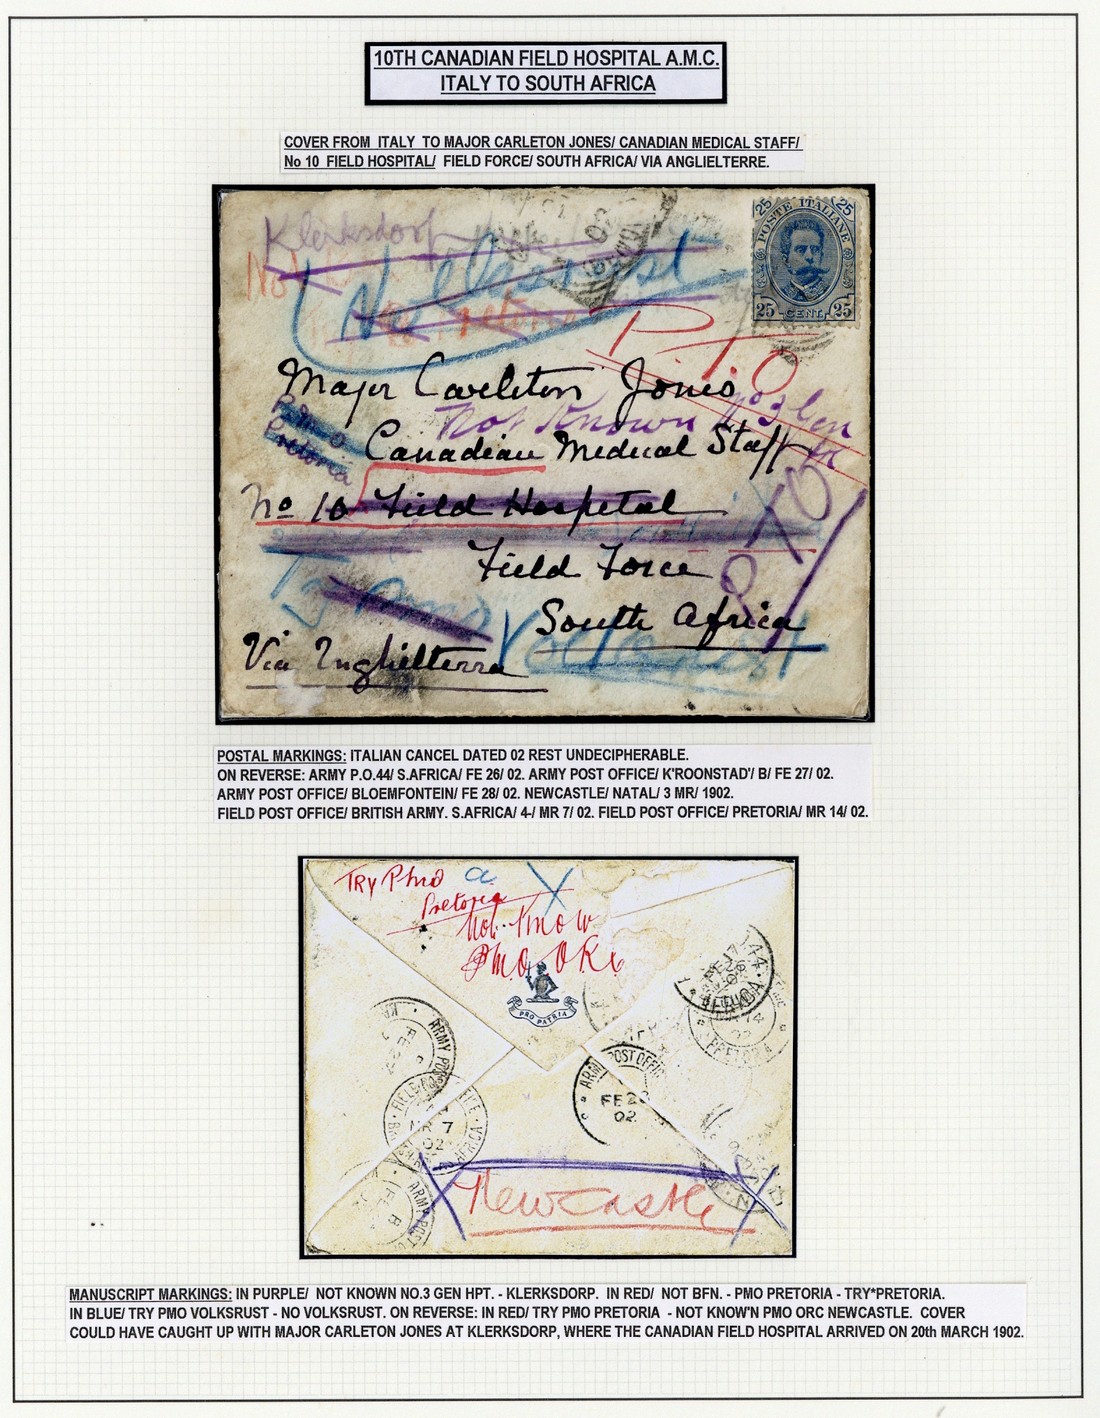 10TH CANADIAN FIELD HOSPITAL A.M.C.
ITALY TO SOUTH AFRICA
COVER FROM ITALY TO MAJOR CARLETON JONES/ CANADIAN MEDICAL STAFF/
No 10 FIELD HOSPITAL/ FIELD FORCE/ SOUTH AFRICA/ VIA ANGLIELTERRE.
Klerksdorp
No
No Volksrust
25 25
POSTE ITALIANE
25 CENT. 25
PTO
Major Carleton Jones
Not Known No 3 Gen
P.M.O.
Pretoria
Canadian Medical Staff
No 10 Field Hospital
PTO
Field Force
Try PMO
South Africa
Volksrust
Via Inghilterra
POSTAL MARKINGS: ITALIAN CANCEL DATED 02 REST UNDECIPHERABLE.
ON REVERSE: ARMY P.O.44/ S.AFRICA/ FE 26/ 02. ARMY POST OFFICE/ K'ROONSTAD'/ B/ FE 27/ 02.
ARMY POST OFFICE/ BLOEMFONTEIN/ FE 28/ 02. NEWCASTLE/ NATAL/ 3 MR/ 1902.
FIELD POST OFFICE/ BRITISH ARMY. S.AFRICA/ 4-/ MR 7/ 02. FIELD POST OFFICE/ PRETORIA/ MR 14/ 02.
TRY PMO
Pretoria
Not Know
PMO ORC
PRO PATRIA
44
PRETORIA
ARMY POST OFFICE
FE 28
02
FIELD POST OFFICE
MR 7
02
ARMY POST
Newcastle
MANUSCRIPT MARKINGS: IN PURPLE/ NOT KNOWN NO.3 GEN HPT. - KLERKSDORP. IN RED/ NOT BFN. - PMO PRETORIA - TRY*PRETORIA.
IN BLUE/ TRY PMO VOLKSRUST - NO VOLKSRUST. ON REVERSE: IN RED/ TRY PMO PRETORIA - NOT KNOW'N PMO ORC NEWCASTLE. COVER
COULD HAVE CAUGHT UP WITH MAJOR CARLETON JONES AT KLERKSDORP, WHERE THE CANADIAN FIELD HOSPITAL ARRIVED ON 20th MARCH 1902.